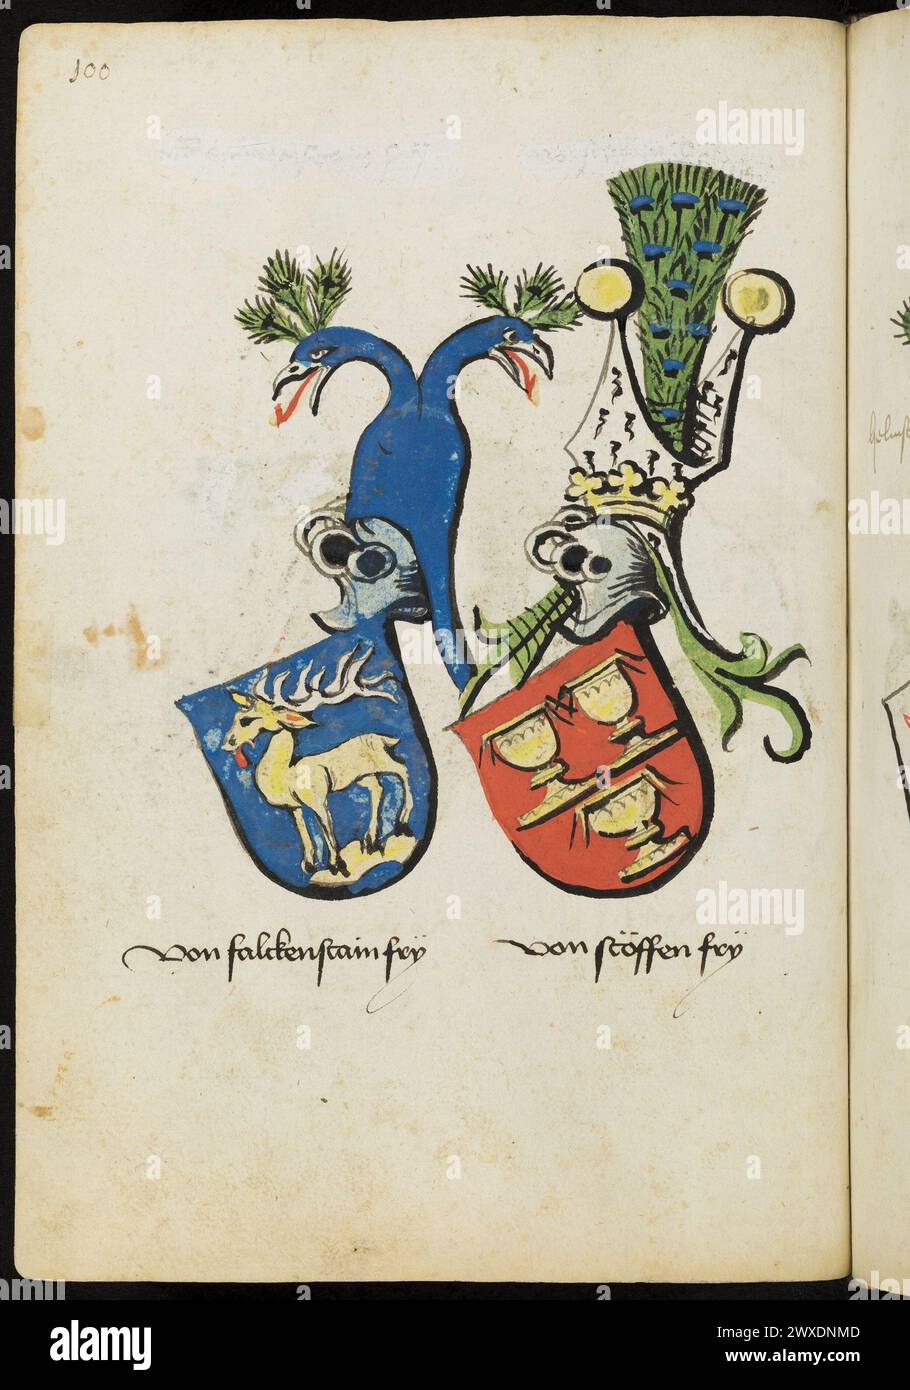 100
von falckenstain frÿ
von stöffen frÿ
alamy
Image ID: 2WXDNMD
www.alamy.com